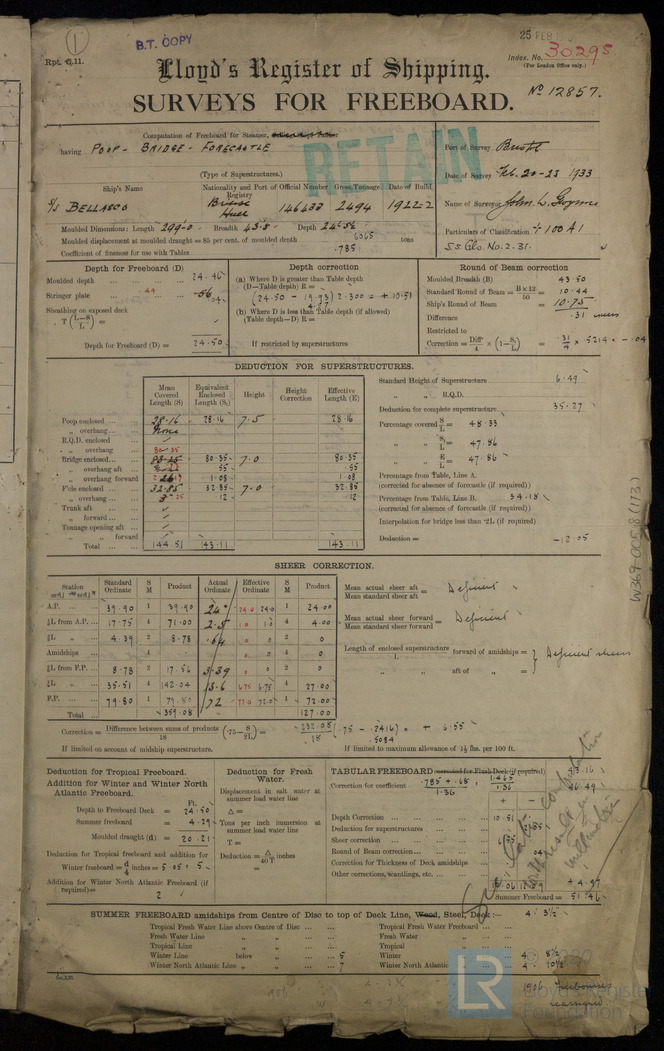 1
B.T. COPY
25 FEB
Rpt. 11.
Index. No. 30295
(For London Office only.)
Lloyd's Register of Shipping.
No 12857.
SURVEYS FOR FREEBOARD.
RETAIN
Computation of Freeboard for Steamer,
having POOP - BRIDGE - FORECASTLE
(Type of Superstructures.)
Port of Survey Bristol
Date of Survey Feb. 20-23 1933
Name of Surveyor John L.
Particulars of Classification + 100 A1
SS. Glo. No. 2. 31.
Ship's Name
Nationality and Port of Registry
Official Number
Gross Tonnage
Date of Build
S/S BELLASCO
British Hull
146433
2494
1922-2
Moulded Dimensions: Length 299.0 Breadth 43.5 Depth
Moulded displacement at moulded draught = 85 per cent. of moulded depth 6065 tons
Coefficient of fineness for use with Tables .785
Depth for Freeboard (D)
Moulded depth ... 24.46
Stringer plate ... .04
Sheathing on exposed deck
T (L-S/L) =
Depth for Freeboard (D) = 24.50
Depth correction
(a) Where D is greater than Table depth
(D—Table depth) R =
(24.50 - 19.93) 2.300 = + 10.51
4.57
(b) Where D is less than Table depth (if allowed)
(Table depth—D) R =
If restricted by superstructures
Round of Beam correction
Moulded Breadth (B) 43.50
Standard Round of Beam = B × 12 / 50 = 10.44
Ship's Round of Beam = 10.75
Difference .31
Restricted to
Correction = Diff/4 × (1-S/L) = .31/4 × .5214 = -.04
DEDUCTION FOR SUPERSTRUCTURES.
Mean Covered Length (S)
Equivalent Enclosed Length (S₁)
Height
Height Correction
Effective Length (E)
Poop enclosed ... 28.16 28.16 7.5 28.16
„ overhang ... None
R.Q.D. enclosed
„ overhang
Bridge enclosed... 80.35 80.35 7.0 80.35
„ overhang aft .55 .55
„ overhang forward 1.08 1.08
F'cle enclosed ... 32.85 32.85 7.0 32.85
„ overhang ... .25 .12 .12
Trunk aft
„ forward ...
Tonnage opening aft ...
„ „ forward
Total ... 144.51 143.11 143.11
Standard Height of Superstructure 6.49
„ „ R.Q.D.
Deduction for complete superstructure 35.27
Percentage covered S/L = 48.33
„ „ S₁/L = 47.86
„ „ E/L = 47.86
Percentage from Table, Line A.
(corrected for absence of forecastle (if required))
Percentage from Table, Line B. 34.18
(corrected for absence of forecastle (if required))
Interpolation for bridge less than ·2L (if required)
Deduction = -12.05
W369-0058 (1/3)
SHEER CORRECTION.
Station
Standard Ordinate
S M
Product
Actual Ordinate
Effective Ordinate
S M
Product
A.P. ... 39.90 1 39.90 24 24.0 24.0 1 24.00
¼L from A.P. ... 17.75 4 71.00 2.5 1.0 1.0 4 4.00
½L „ ... 4.39 2 8.78 .64 0 0 2 0
Amidships ... 4 0 0 4
½L from F.P. ... 8.78 2 17.56 3.39 0 0 2 0
¼L „ ... 35.51 4 142.04 13.6 6.75 6.75 4 27.00
F.P. ... 79.80 1 79.80 72 72.0 72.0 1 72.00
Total ... 359.08 127.00
Mean actual sheer aft / Mean standard sheer aft = Deficient
Mean actual sheer forward / Mean standard sheer forward = Deficient
Length of enclosed superstructure / L forward of amidships =
„ „ aft of „ = } Deficient sheer
Correction = Difference between sums of products / 18 (·75 — S/2L) = 232.08 / 18 (.75 - .2416) = + 6.55
.5084
If limited on account of midship superstructure.
If limited to maximum allowance of 1½ Ins. per 100 ft.
Deduction for Tropical Freeboard.
Addition for Winter and Winter North Atlantic Freeboard.
Ft.
Depth to Freeboard Deck = 24.50
Summer freeboard = 4.29
Moulded draught (d) = 20.21
Deduction for Tropical freeboard and addition for
Winter freeboard = d/4 inches = 5.05 = 5
Addition for Winter North Atlantic Freeboard (if required) =
2
Deduction for Fresh Water.
Displacement in salt water at summer load water line
Δ =
Tons per inch immersion at summer load water line
T =
Deduction = Δ / 40 T inches
=
TABULAR FREEBOARD corrected for Flush Deck (if required) 43.16
Correction for coefficient .785 + .68 / 1.36 1.465 / 1.36 46.49
+ -
Depth Correction ... 10.51
Deduction for superstructures ...
Sheer correction ...
Round of Beam correction... .04
Correction for Thickness of Deck amidships
Other corrections, scantlings, etc. ...
+ 4.97
Summer Freeboard = 51.46
SUMMER FREEBOARD amidships from Centre of Disc to top of Deck Line, Wood, Steel, Deck :— 4. 3½
Tropical Fresh Water Line above Centre of Disc ...
Fresh Water Line „ „ ...
Tropical Line „ „ ...
Winter Line below „ ... 5
Winter North Atlantic Line „ „ ... 7
Tropical Fresh Water Freeboard ...
Fresh Water „ ...
Tropical „ ...
Winter „ ... 4. 8½
Winter North Atlantic „ 4. 10½
1906 Freeboards reassigned
LR
© 2020
Lloyd's Register
Foundation